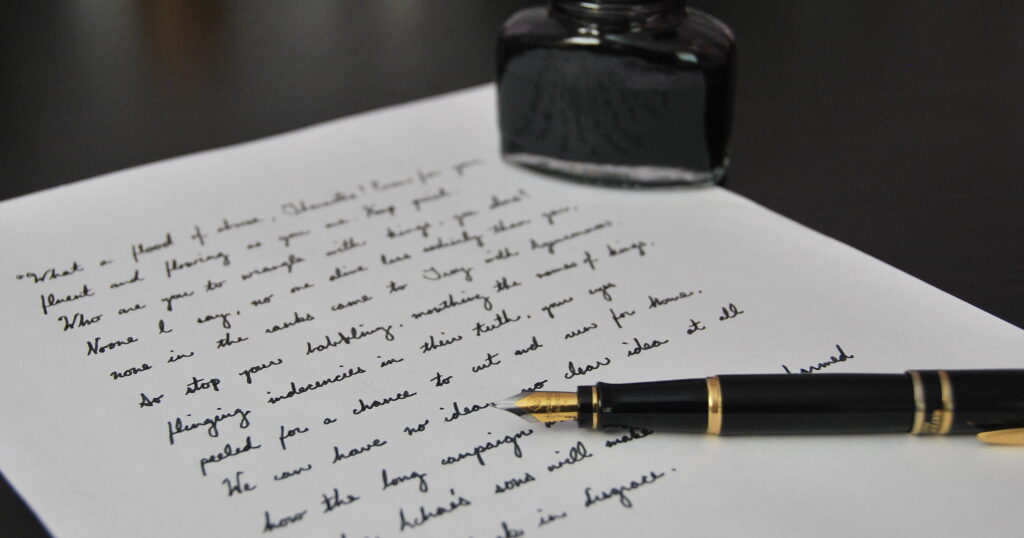 "What a flood of abuse, Thersites! Even for you,
fluent and flowing as you are. Keep quiet.
Who are you to wrangle with kings, you alone?
Noone I say, no one alive less soldierly than you,
none in the ranks came to Troy with Agamemnon.
So stop your babbling, mouthing the names of kings,
flinging indecencies in their teeth, your eyes
peeled for a chance to cut and run for home.
We can have no idea, no clear idea at all
how the long campaign
Achaea's sons will make
in disgrace.